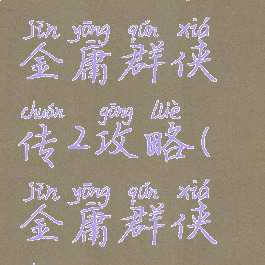 jīn yōng qún xiá
金庸群侠
chuán gōng lüè
传2攻略(
jīn yōng qún xiá
金庸群侠